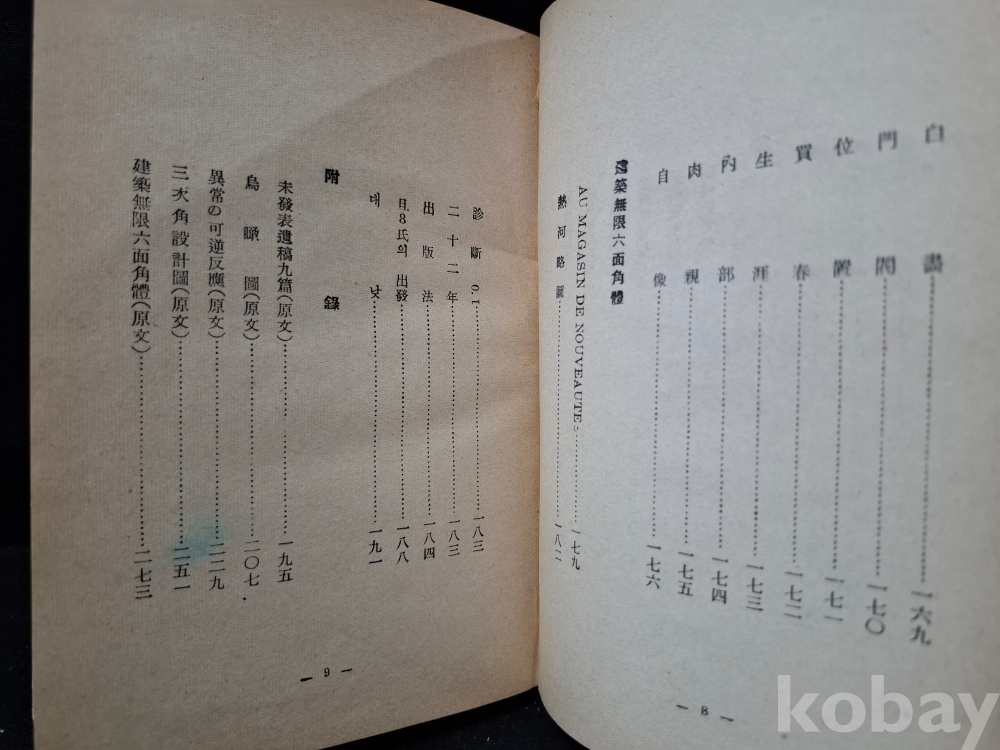 白畫⋯⋯一六九
門閥⋯⋯一七〇
位置⋯⋯一七一
買春⋯⋯一七二
生涯⋯⋯一七三
內部⋯⋯一七四
肉親⋯⋯一七五
自像⋯⋯一七六
建築無限六面角體
AU MAGASIN DE NOUVEAUTES⋯⋯一七九
熱河略圖⋯⋯一八二
— 8 —
診斷 0.1⋯⋯一八三
二十二年⋯⋯一八三
出版法⋯⋯一八四
且.8氏의 出發⋯⋯一八八
대낮⋯⋯一九一
附錄
未發表遺稿九篇(原文)⋯⋯一九五
鳥瞰圖(原文)⋯⋯二〇七
異常の可逆反應(原文)⋯⋯二二九
三次角設計圖(原文)⋯⋯二五一
建築無限六面角體(原文)⋯⋯二七三
— 9 —
kobay